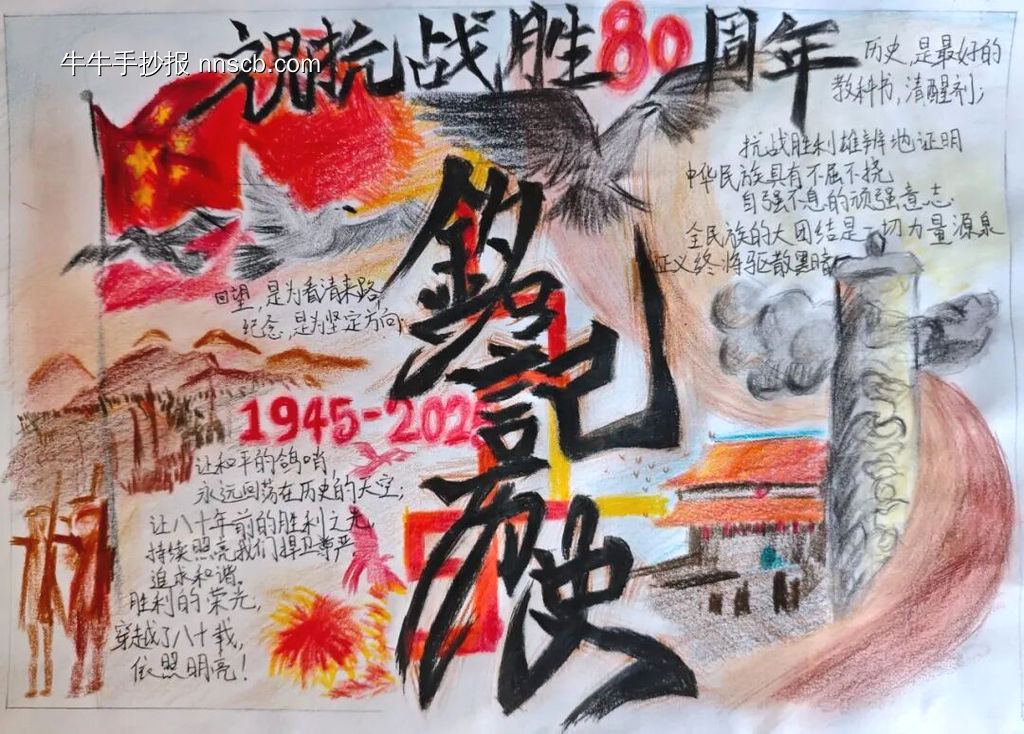 牛牛手抄报 nnscb.com
祝抗战胜80周年
历史,是最好的
教科书,清醒剂;
抗战胜利雄辩地证明
中华民族具有不屈不挠
自强不息的顽强意志
全民族的大团结是一切力量源泉
正义终将驱散黑暗
回望,是为看清来路,
纪念,是为坚定方向.
銘記歷史
1945-2025
让和平的鸽哨,
永远回荡在历史的天空;
让八十年前的胜利之光,
持续照亮我们捍卫尊严,
追求和谐。
胜利的荣光,
穿越了八十载,
依照明亮!